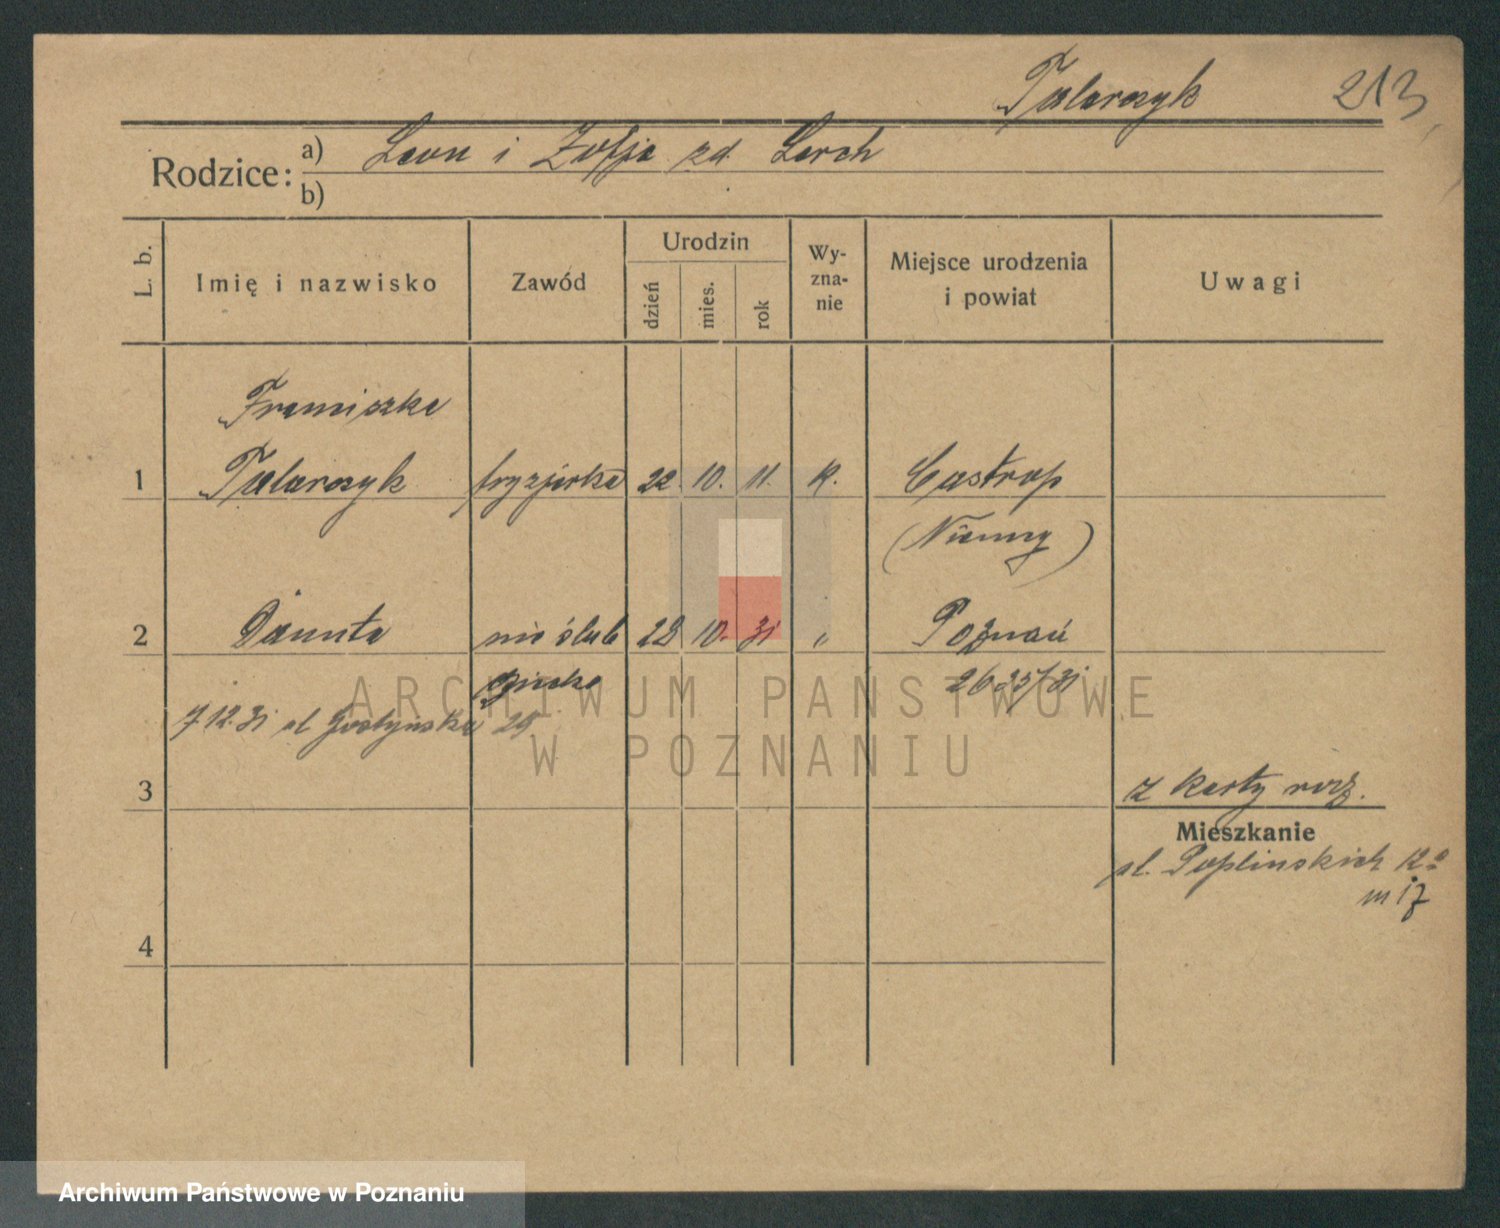 Talarczyk 213
Rodzice: a) Leon i Zofja zd. Lerch
b)
L. b. Imię i nazwisko Zawód Urodzin dzień mies. rok Wyzna-nie Miejsce urodzenia i powiat Uwagi
Franciszka
1 Talarczyk fryzjerka 22. 10. 11. k. Castrop
(Niemcy)
2 Danuta nieślub 28 10. 31 " Poznań
dziecko 2635/31
7.12.31 ul Gostyńska 25
ARCHIWUM PAŃSTWOWE
W POZNANIU
3 z karty
Mieszkanie
ul. Poplinskich 12a
m 17
4
Archiwum Państwowe w Poznaniu